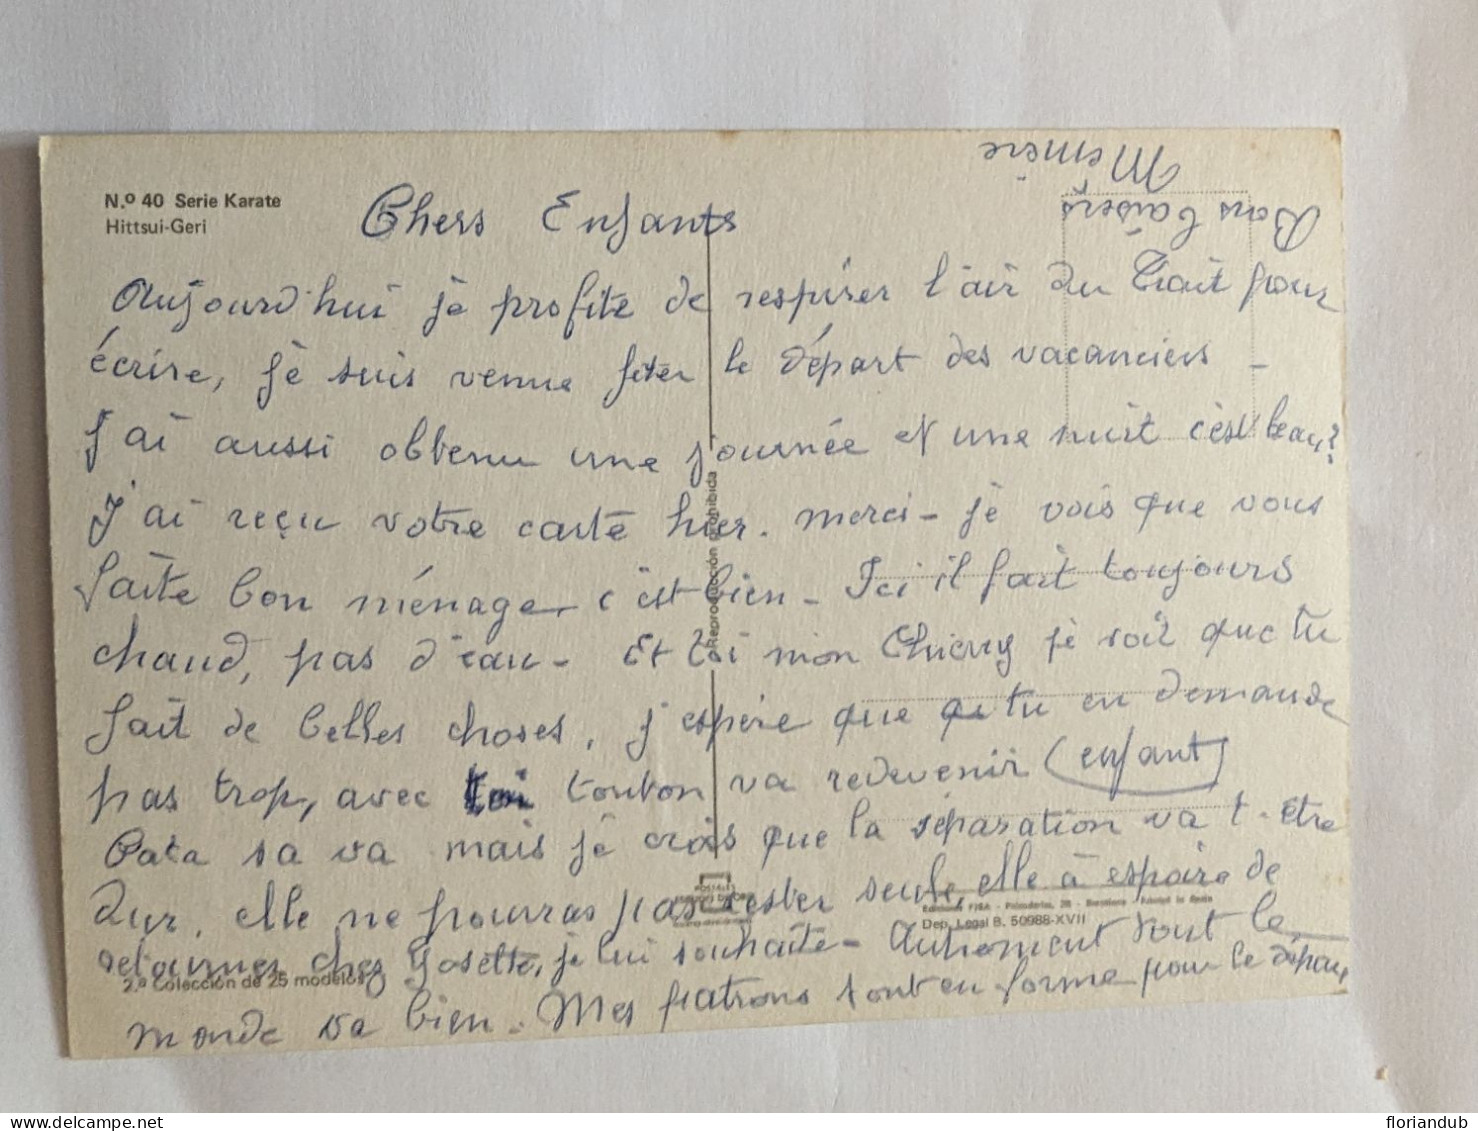 N.º 40 Serie Karate
Hittsui-Geri
Chers Enfants
Aujourd'hui je profite de respirer l'air du Trait pour
écrire, je suis venue feter le départ des vacanciers -
J'ai aussi obtenu une journée et une nuit c'est beau?
J'ai reçu votre carte hier. merci - je vois que vous
faite bon ménage, c'est bien - Ici il fait toujours
chaud, pas d'eau - Et toi mon Thierry je soit que tu
fait de belles choses, j'espère que tu en demande
pas trop, avec toi tonton va redevenir (enfant)
Cata sa va mais je crois que la séparation va t. être
dur, elle ne pourras pas rester seule, elle à espoire de
retourner chez Josette, je lui souhaite - Autrement tout le
monde va bien - Mes patrons sont en forme pour le départ
Bons baisers
Mémère
Reproducción prohibida
Ediciones FISA - Palaudarias, 26 - Barcelona - Printed in Spain
Dep. Legal B. 50988-XVII
2.ª Colección de 25 modelos
floriandub